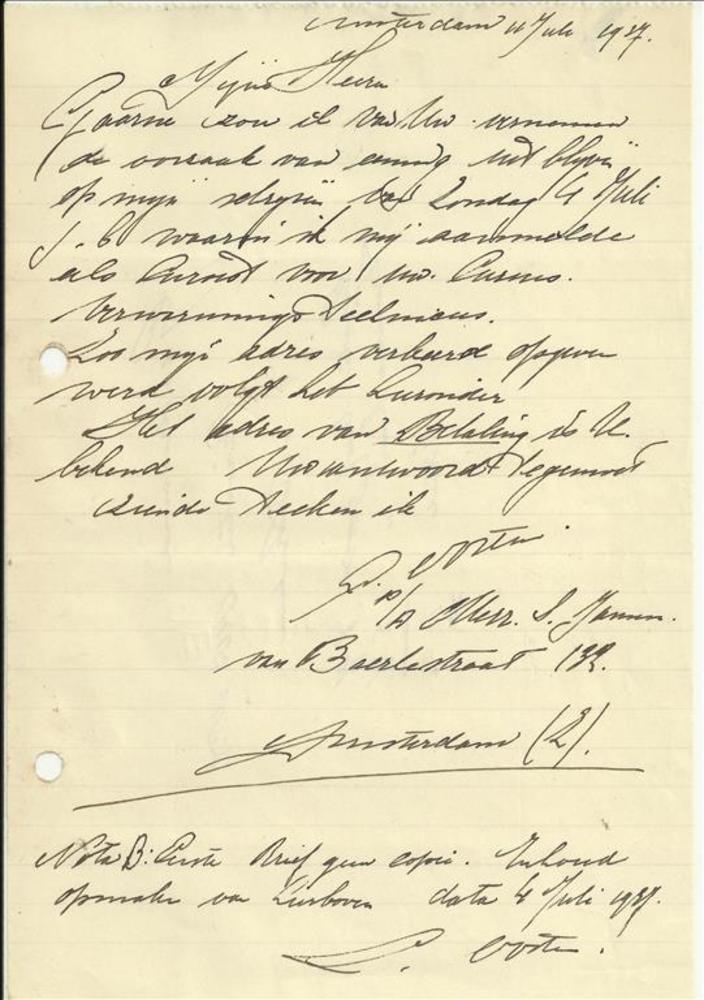 Amsterdam 11 Juli 1937.
Mijne Heeren
Gaarne zou ik van Uw vernemen
de oorzaak van eenig uitblijven
op mijn schrijven van Zondag 4 Juli
j.l. waarin ik mij aanmelde
als Cursist voor uw. Cursus.
Verwarmings Technicus.
Zoo mijn adres verkeerd opgeven
werd volgt het hieronder
Het adres van Betaling is U.
bekend Uw antwoord tegemoet
ziende teeken ik
Oosten.
p/a Mevr. S. Jansen.
van Baerlestraat 132.
Amsterdam (Z).
Nota B: Eerste Brief geen copie. Inhoud
opmaken van hierboven data 4 Juli 1937.
Oosten.